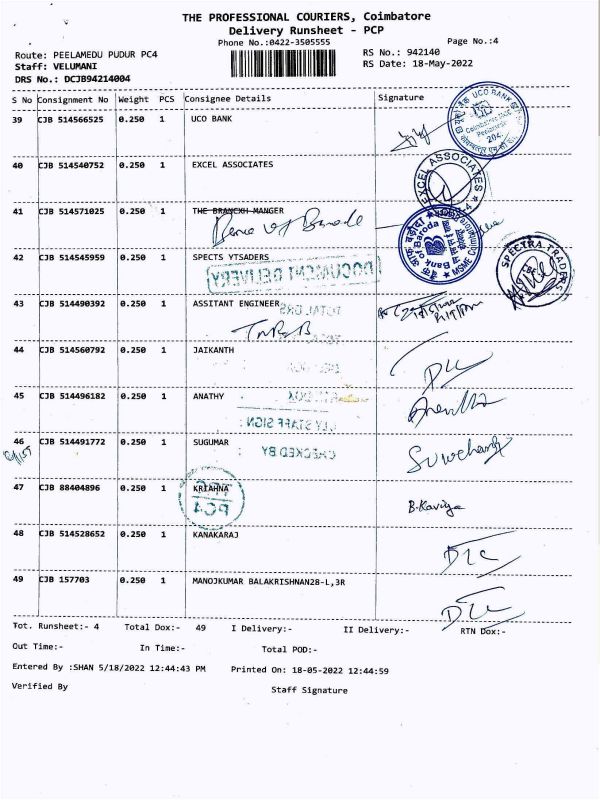 THE PROFESSIONAL COURIERS, Coimbatore
Delivery Runsheet - PCP
Phone No.:0422-3505555
Page No.:4
Route: PEELAMEDU PUDUR PC4
RS No.: 942140
Staff: VELUMANI
RS Date: 18-May-2022
DRS No.: DCJB94214004
S No Consignment No Weight PCS Consignee Details Signature
39 CJB 514566525 0.250 1 UCO BANK
UCO BANK
204
40 CJB 514540752 0.250 1 EXCEL ASSOCIATES
EXCEL ASSOCIATES
41 CJB 514571025 0.250 1 THE BRANCXH MANGER
Bank of Baroda
Bank of Baroda
MSME
42 CJB 514545959 0.250 1 SPECTS YTSADERS
DOCUMENT DELIVERY
SPECTRA TRADERS
43 CJB 514490392 0.250 1 ASSITANT ENGINEER
TOTAL DRS
44 CJB 514560792 0.250 1 JAIKANTH
45 CJB 514496182 0.250 1 ANATHY
DLY STAFF SIGN
46 CJB 514491772 0.250 1 SUGUMAR
CHECKED BY
47 CJB 88404896 0.250 1 KRIAHNA
TPC
PC4
B.Kaviya
48 CJB 514528652 0.250 1 KANAKARAJ
49 CJB 157703 0.250 1 MANOJKUMAR BALAKRISHNAN28-L,3R
Tot. Runsheet:- 4 Total Dox:- 49 I Delivery:- II Delivery:- RTN Dox:-
Out Time:- In Time:- Total POD:-
Entered By :SHAN 5/18/2022 12:44:43 PM Printed On: 18-05-2022 12:44:59
Verified By Staff Signature